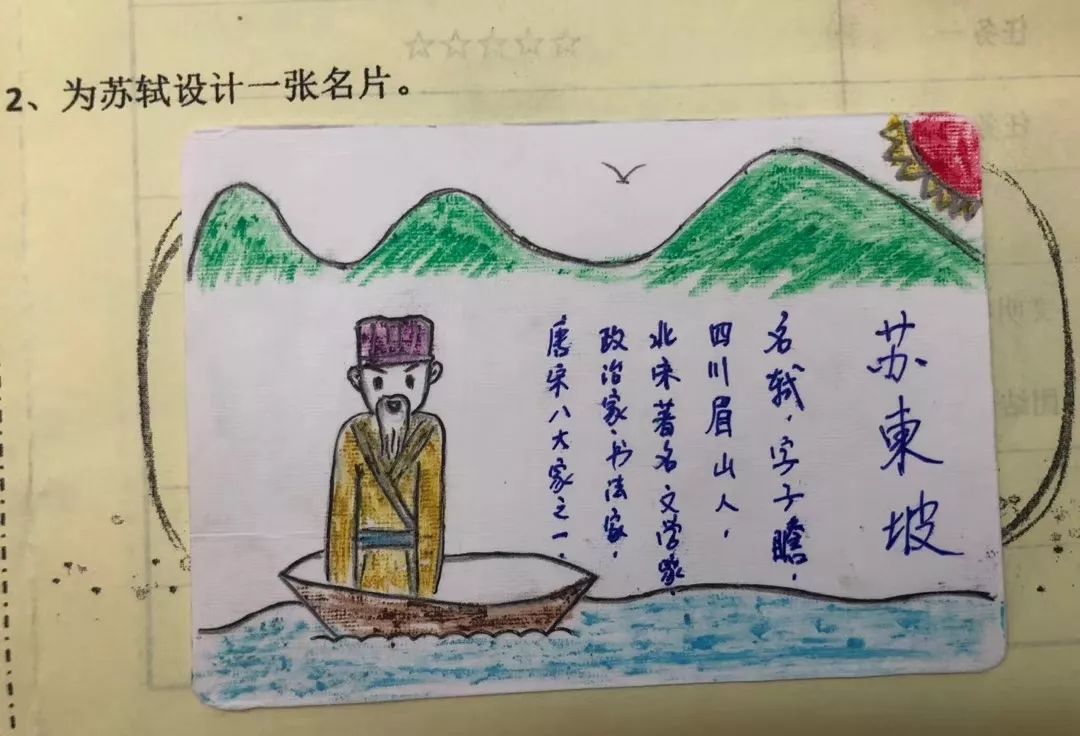 2、为苏轼设计一张名片。
苏東坡
名轼，字子瞻，
四川眉山人，
北宋著名文学家，
政治家、书法家，
唐宋八大家之一。